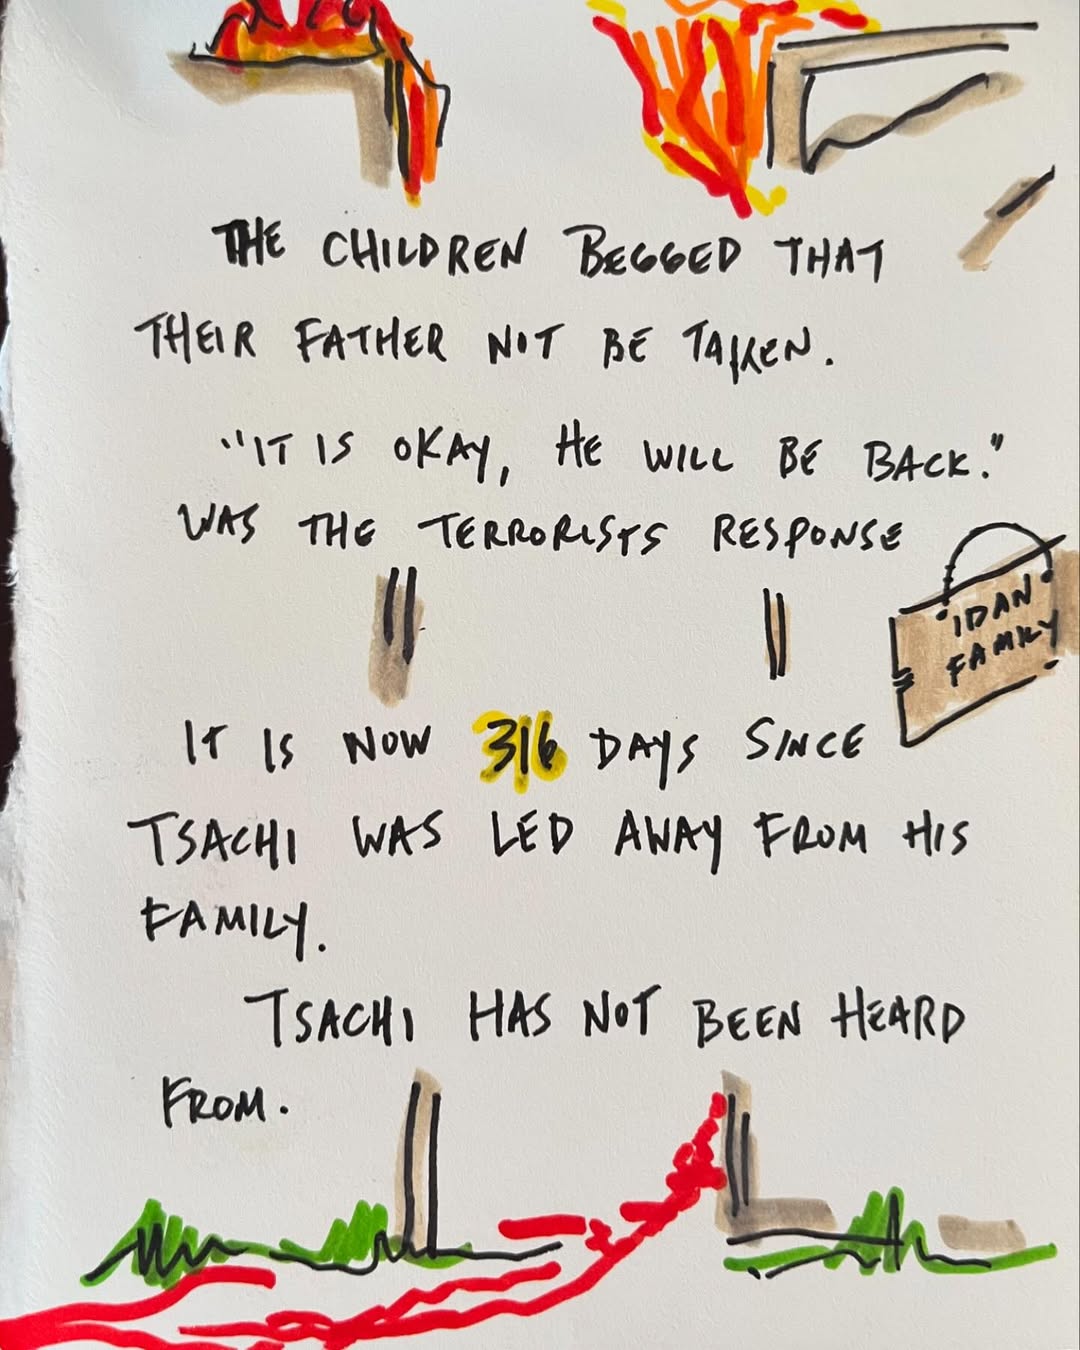 THE CHILDREN BEGGED THAT
THEIR FATHER NOT BE TAKEN.
"IT IS OKAY, HE WILL BE BACK."
WAS THE TERRORISTS RESPONSE
IDAN
FAMILY
IT IS NOW 316 DAYS SINCE
TSACHI WAS LED AWAY FROM HIS
FAMILY.
TSACHI HAS NOT BEEN HEARD
FROM.